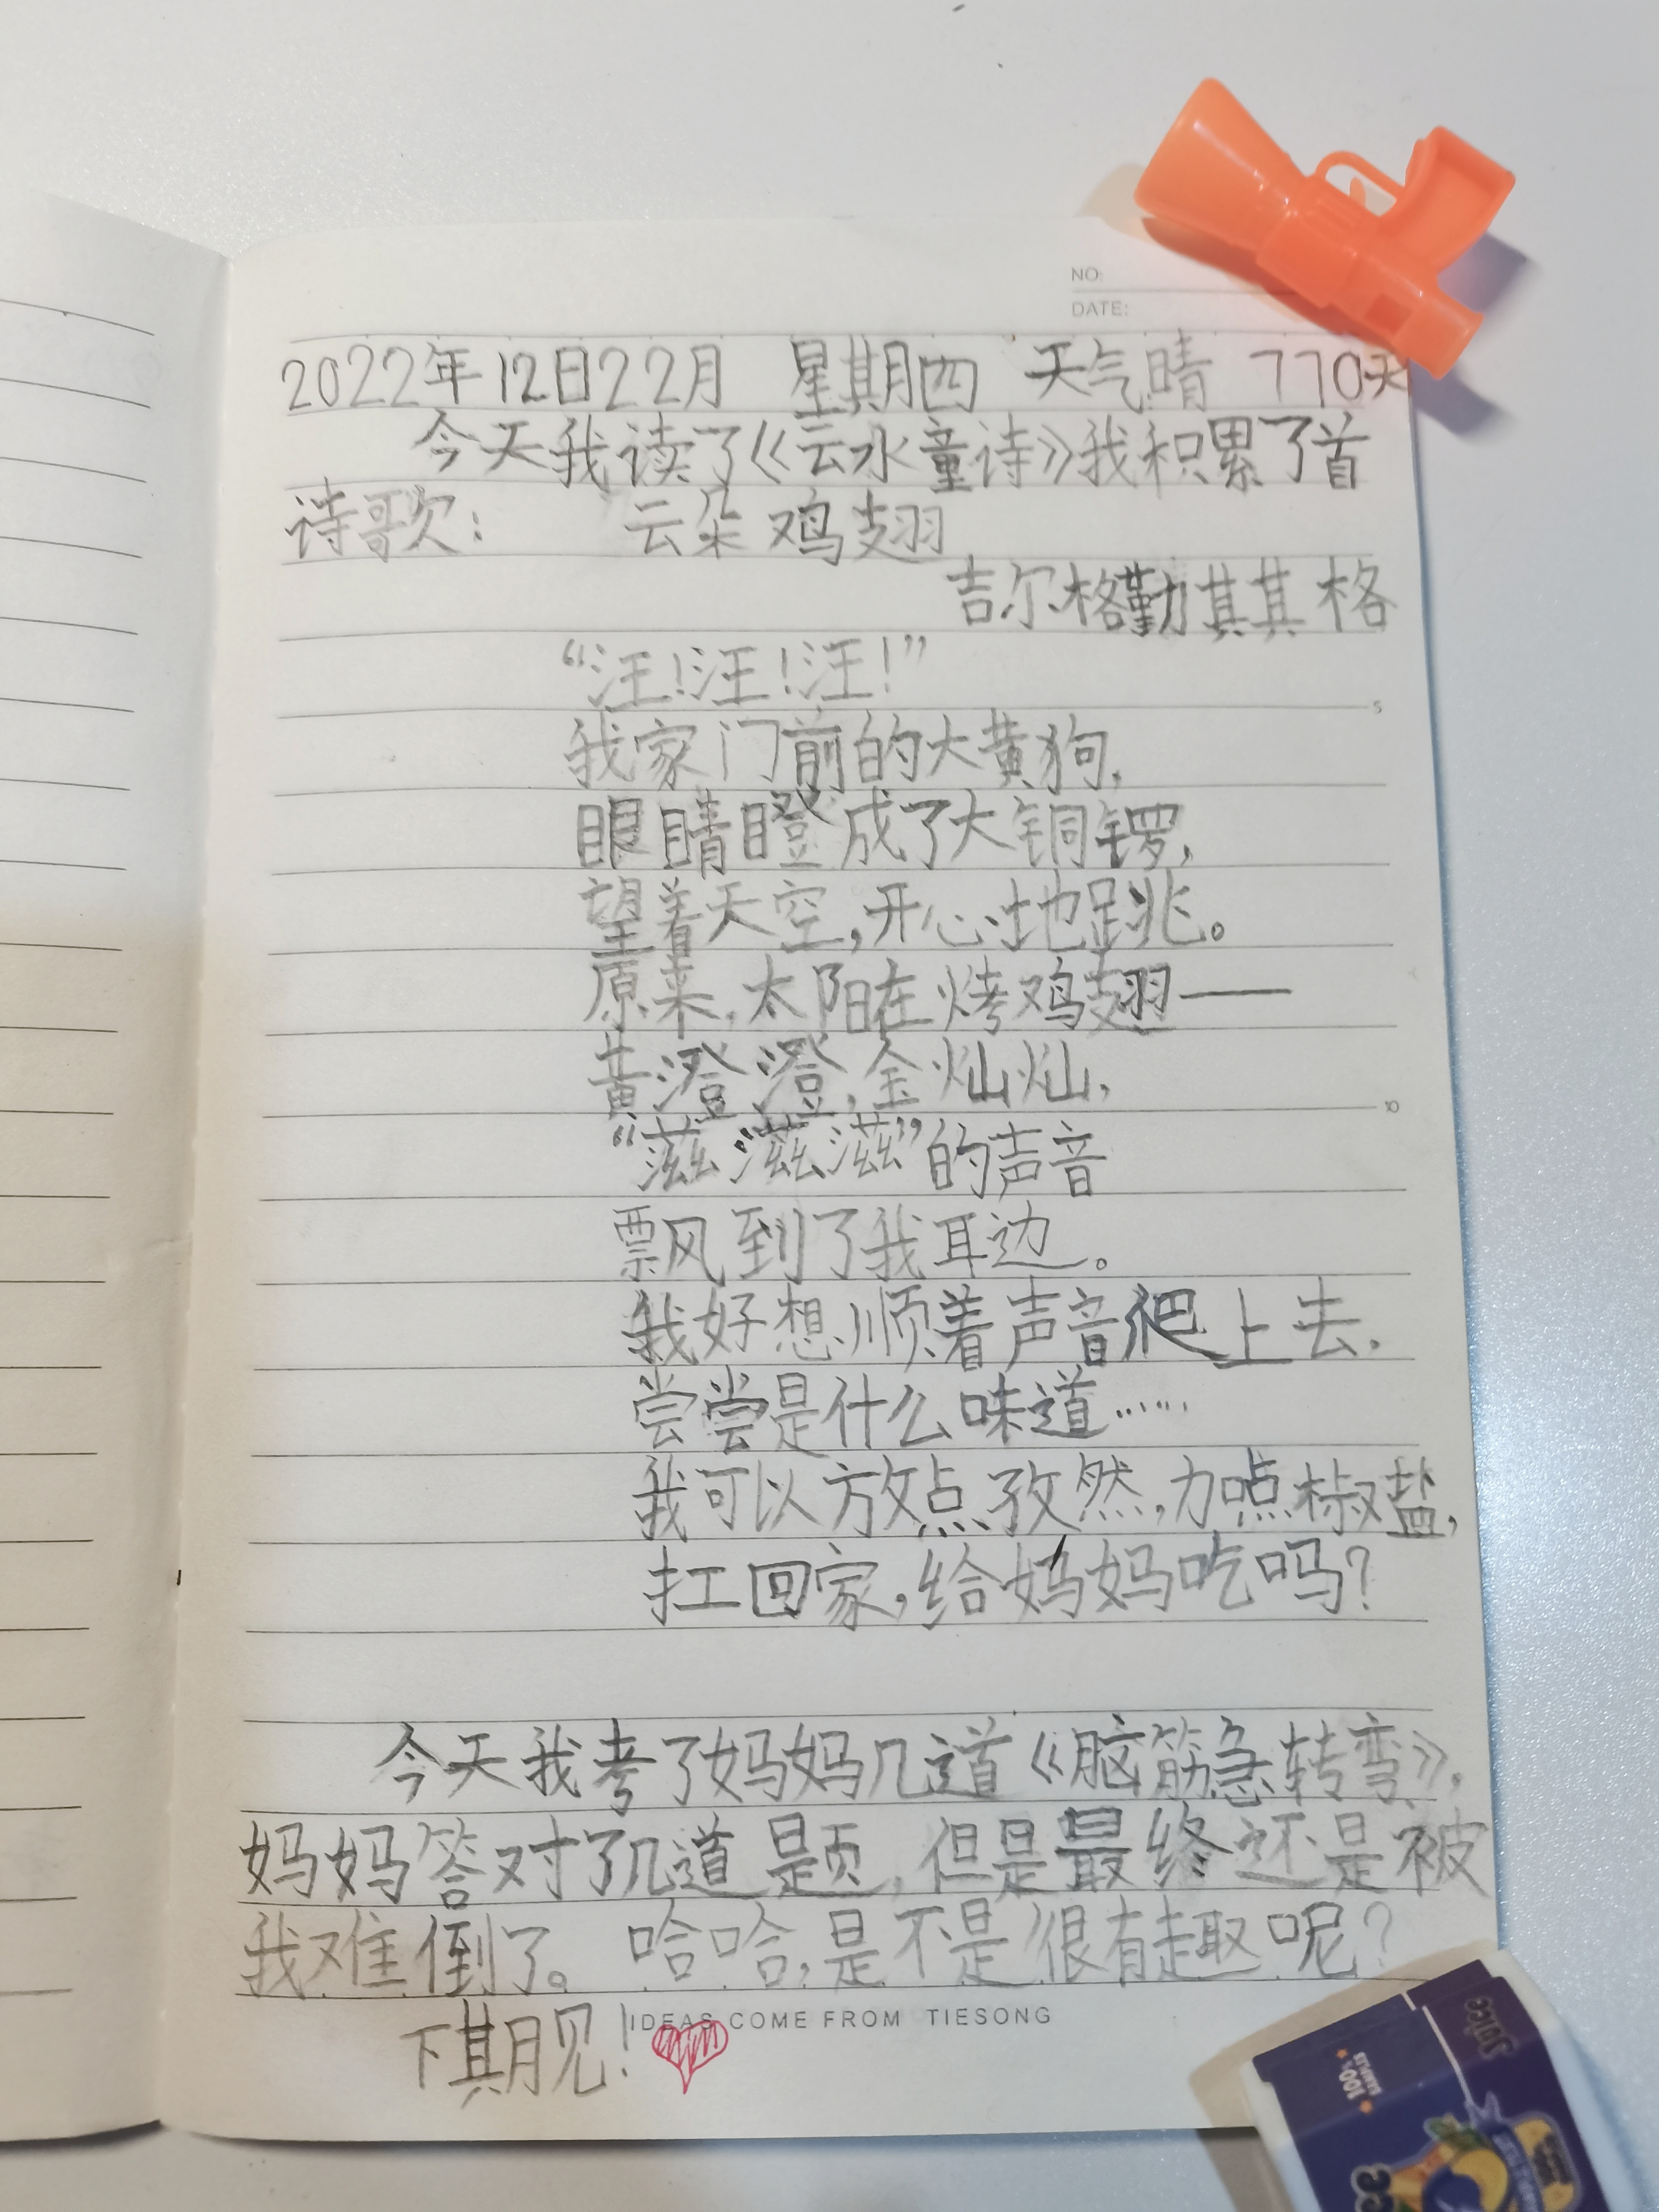 NO:
DATE:
2022年12日22月 星期四 天气晴 770天
今天我读了《云水童诗》我积累了首
诗歌: 云朵鸡翅
吉尔格勤其其格
“汪!汪!汪!”
我家门前的大黄狗,
5
眼睛瞪成了大铜锣,
望着天空,开心地跳。
原来,太阳在烤鸡翅——
黄澄澄,金灿灿,
10
“滋滋滋”的声音
飘到了我耳边。
我好想顺着声音爬上去,
尝尝是什么味道……
我可以放点孜然,加点椒盐,
扛回家,给妈妈吃吗?
今天我考了妈妈几道《脑筋急转弯》,
妈妈答对了几道题,但是最终还是被
我难倒了。哈哈,是不是很有趣呢?
IDEAS COME FROM TIESONG
下期见!
Juice
100%